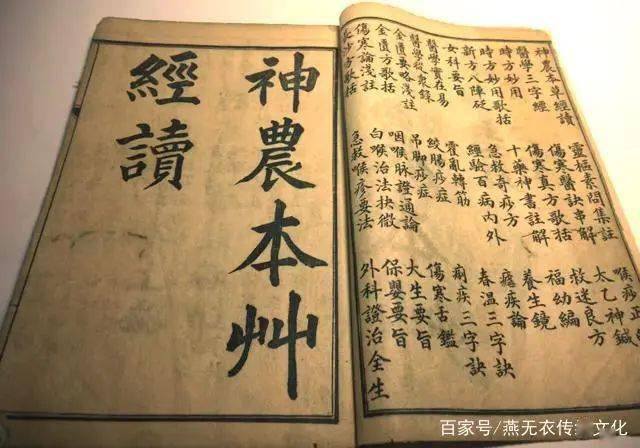 神農本草經讀
醫學三字經
時方妙用
時方妙用歌括
新方八陣砭
女科要旨
醫學實在易
醫學從衆錄
金匱要略淺註
金匱方歌括
傷寒論淺註
長沙方歌括
靈樞素問集註
傷寒醫訣串解
傷寒真方歌括
十藥神書註解
急救奇痧方
經驗百病內外
霍亂轉筋
絞腸痧症
吊脚痧症
咽喉脉證通論
白喉治法抉微
急救喉疹要法
喉痧正
太乙神鍼
救迷良方
福幼編
養生鏡
瘧疾論
春温三字訣
痢疾三字訣
傷寒舌鑑
大生要旨
保嬰要旨
外科證治全生
神農本艸
經讀
百家号/燕无衣传: 文化